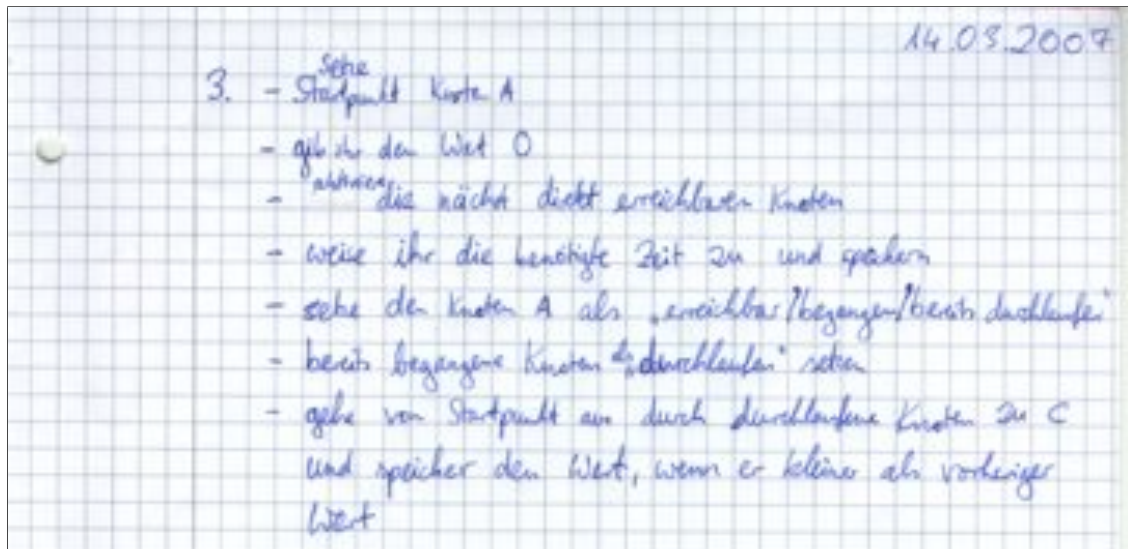 14.03.2007
setze
3. - Startpunkt Knoten A
- gib ihr den Wert 0
- aktiviere die nächst direkt erreichbaren Knoten
- weise ihr die benötigte Zeit zu und speichern
- setze den Knoten A als „erreichbar/begangen/bereits durchlaufen“
- bereits begangene Knoten als „durchlaufen“ setzen
- gehe von Startpunkt aus durch durchlaufene Knoten zu C
und speicher den Wert, wenn er kleiner als vorheriger
Wert